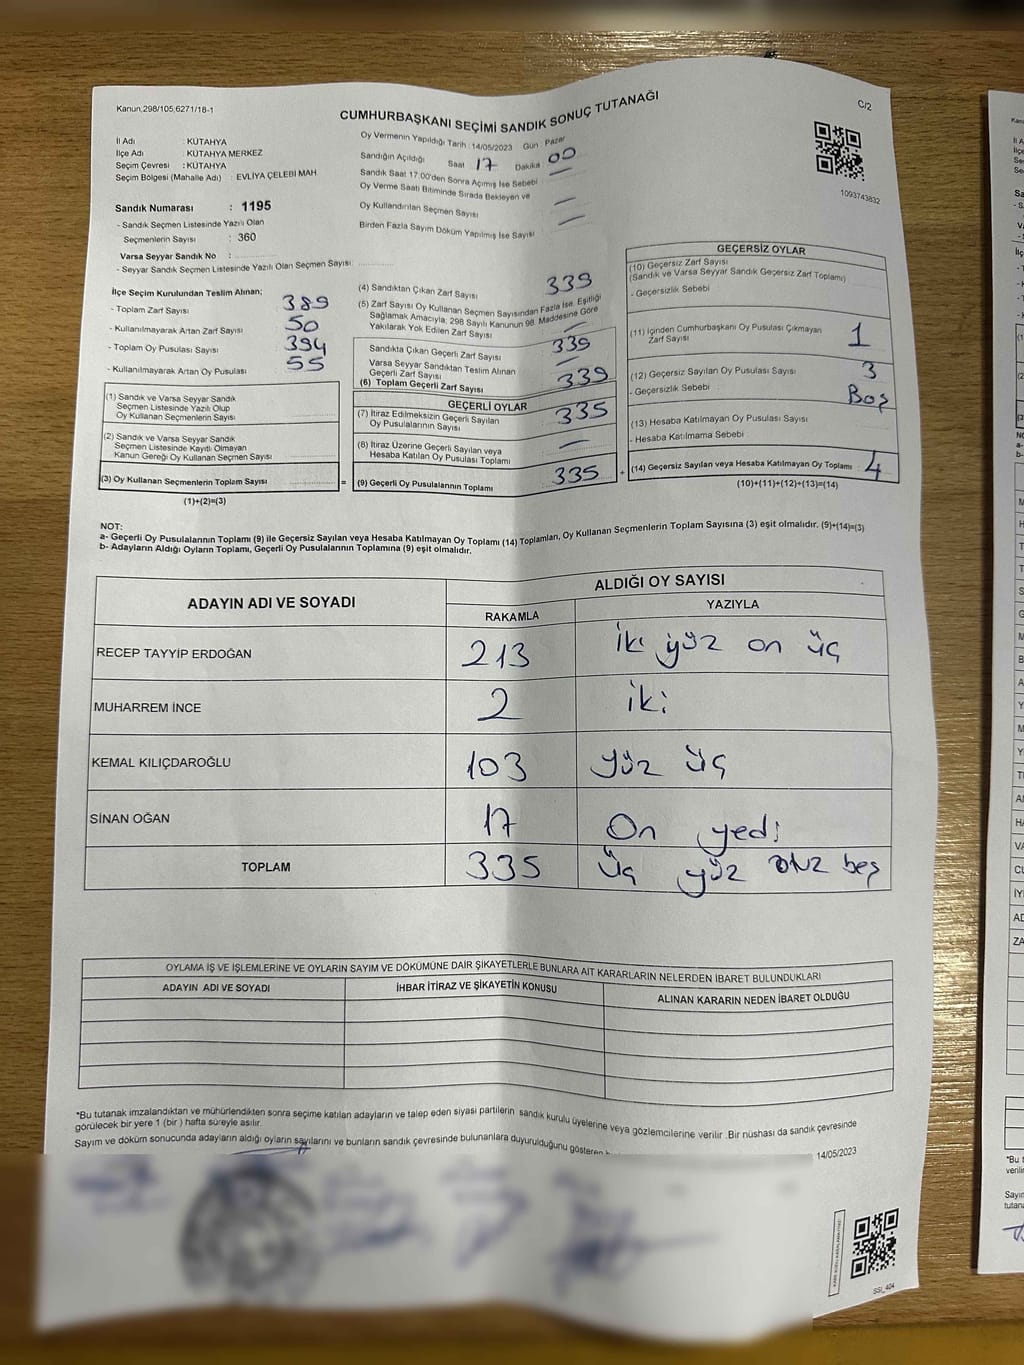 Kanun,298/105,6271/18-1
C/2
CUMHURBAŞKANI SEÇİMİ SANDIK SONUÇ TUTANAĞI
İl Adı : KÜTAHYA
İlçe Adı : KÜTAHYA MERKEZ
Seçim Çevresi : KÜTAHYA
Seçim Bölgesi (Mahalle Adı) : EVLİYA ÇELEBİ MAH.
Sandık Numarası : 1195
- Sandık Seçmen Listesinde Yazılı Olan
Seçmenlerin Sayısı : 360
Varsa Seyyar Sandık No :
- Seyyar Sandık Seçmen Listesinde Yazılı Olan Seçmen Sayısı:
Oy Vermenin Yapıldığı Tarih : 14/05/2023 Gün : Pazar
Sandığın Açıldığı Saat 17 Dakika 00
Sandık Saat 17.00'den Sonra Açımış İse Sebebi —
Oy Verme Saati Bitiminde Sırada Bekleyen ve
Oy Kullandırılan Seçmen Sayısı —
Birden Fazla Sayım Döküm Yapılmış İse Sayısı —
1093743832
İlçe Seçim Kurulundan Teslim Alınan;
- Toplam Zarf Sayısı 389
- Kullanılmayarak Artan Zarf Sayısı 50
- Toplam Oy Pusulası Sayısı 394
- Kullanılmayarak Artan Oy Pusulası 55
(1) Sandık ve Varsa Seyyar Sandık
Seçmen Listesinde Yazılı Olup
Oy Kullanan Seçmenlerin Sayısı
(2) Sandık ve Varsa Seyyar Sandık
Seçmen Listesinde Kayıtlı Olmayan
Kanun Gereği Oy Kullanan Seçmen Sayısı
(3) Oy Kullanan Seçmenlerin Toplam Sayısı =
(1)+(2)=(3)
(4) Sandıktan Çıkan Zarf Sayısı 339
(5) Zarf Sayısı Oy Kullanan Seçmen Sayısından Fazla İse, Eşitliği
Sağlamak Amacıyla; 298 Sayılı Kanunun 98. Maddesine Göre
Yakılarak Yok Edilen Zarf Sayısı —
Sandıkta Çıkan Geçerli Zarf Sayısı 339
Varsa Seyyar Sandıktan Teslim Alınan
Geçerli Zarf Sayısı —
(6) Toplam Geçerli Zarf Sayısı 339
GEÇERLİ OYLAR
(7) İtiraz Edilmeksizin Geçerli Sayılan
Oy Pusulalarının Sayısı 335
(8) İtiraz Üzerine Geçerli Sayılan veya
Hesaba Katılan Oy Pusulası Toplamı —
(9) Geçerli Oy Pusulalarının Toplamı 335 +
GEÇERSİZ OYLAR
(10) Geçersiz Zarf Sayısı
(Sandık ve Varsa Seyyar Sandık Geçersiz Zarf Toplamı)
- Geçersizlik Sebebi
(11) İçinden Cumhurbaşkanı Oy Pusulası Çıkmayan
Zarf Sayısı 1
(12) Geçersiz Sayılan Oy Pusulası Sayısı 3
- Geçersizlik Sebebi Boş
(13) Hesaba Katılmayan Oy Pusulası Sayısı
- Hesaba Katılmama Sebebi
(14) Geçersiz Sayılan veya Hesaba Katılmayan Oy Toplamı 4
(10)+(11)+(12)+(13)=(14)
NOT:
a- Geçerli Oy Pusulalarının Toplamı (9) ile Geçersiz Sayılan veya Hesaba Katılmayan Oy Toplamı (14) Toplamları, Oy Kullanan Seçmenlerin Toplam Sayısına (3) eşit olmalıdır. (9)+(14)=(3)
b- Adayların Aldığı Oyların Toplamı, Geçerli Oy Pusulalarının Toplamına (9) eşit olmalıdır.
ADAYIN ADI VE SOYADI
ALDIĞI OY SAYISI
RAKAMLA YAZIYLA
RECEP TAYYİP ERDOĞAN 213 iki yüz on üç
MUHARREM İNCE 2 iki
KEMAL KILIÇDAROĞLU 103 yüz üç
SİNAN OĞAN 17 On yedi
TOPLAM 335 üç yüz otuz beş
OYLAMA İŞ VE İŞLEMLERİNE VE OYLARIN SAYIM VE DÖKÜMÜNE DAİR ŞİKAYETLERLE BUNLARA AİT KARARLARIN NELERDEN İBARET BULUNDUKLARI
ADAYIN ADI VE SOYADI İHBAR İTİRAZ VE ŞİKAYETİN KONUSU ALINAN KARARIN NEDEN İBARET OLDUĞU
*Bu tutanak imzalandıktan ve mühürlendikten sonra seçime katılan adayların ve talep eden siyasi partilerin sandık kurulu üyelerine veya gözlemcilerine verilir .Bir nüshası da sandık çevresinde
görülecek bir yere 1 (bir ) hafta süreyle asılır.
Sayım ve döküm sonucunda adayların aldığı oyların sayılarını ve bunların sandık çevresinde bulunanlara duyurulduğunu gösteren
14/05/2023
SSI_404